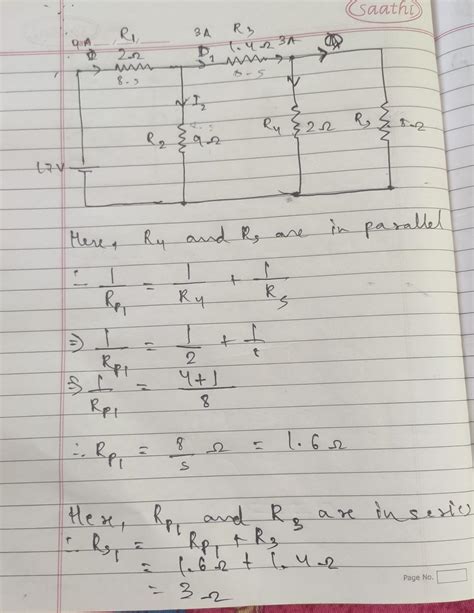 saathi
4A R₁ 3A R₃
2Ω I₁ 1.4Ω 3A
I₂
R₂ 9Ω R₄ 2Ω R₅ 8Ω
17V
Here, R₄ and R₅ are in parallel
∴ 1/Rp₁ = 1/R₄ + 1/R₅
⇒ 1/Rp₁ = 1/2 + 1/8
⇒ 1/Rp₁ = 4+1/8
∴ Rp₁ = 8/5 Ω = 1.6Ω
Here, Rp₁ and R₃ are in series
∴ Rs₁ = Rp₁ + R₃
= 1.6Ω + 1.4Ω
= 3Ω
Page No.